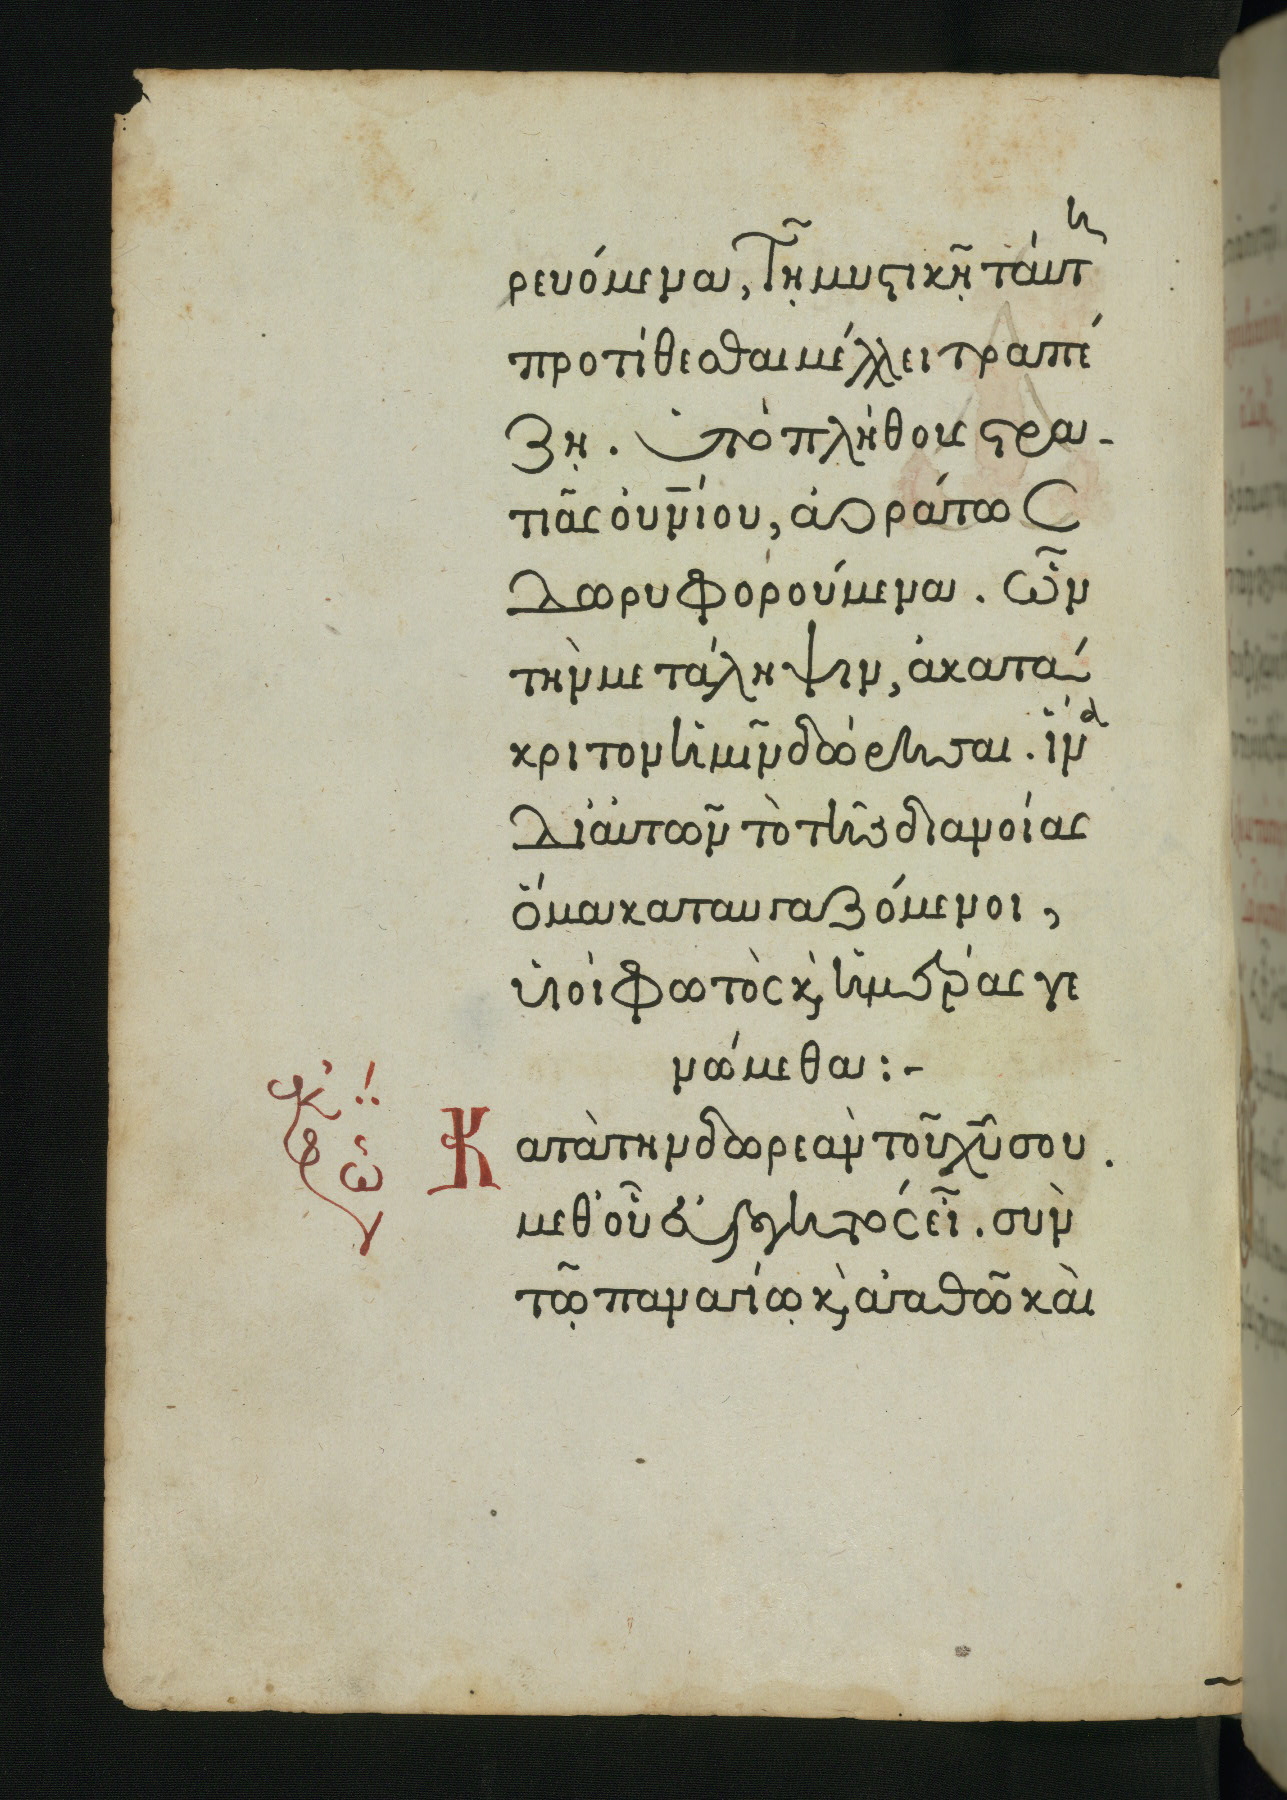 ρευόμενα, τῇ μυστικῇ ταύτη
προτίθεσθαι μέλλει τραπέ
ζῃ. ὑπὸ πλήθους στρα-
τιᾶς οὐνίου, ἀοράτως
δωρυφορούμενα. ὧν
τὴν μετάληψιν, ἀκατά
κριτον ἡμῖν δώρησαι. ἵνα
δι' αὐτῶν τὸ τῆς διανοίας
ὄμα καταυγαζόμενοι,
υἱοὶ φωτὸς κ, ἡμέρας γε
νώμεθα :-
Κατὰ τὴν δωρεὰν τοῦ χῦ σου.
μεθ' οὗ εὐλογητὸς εἶ. σὺν
τῷ παναγίῳ κ, ἀγαθῷ καὶ